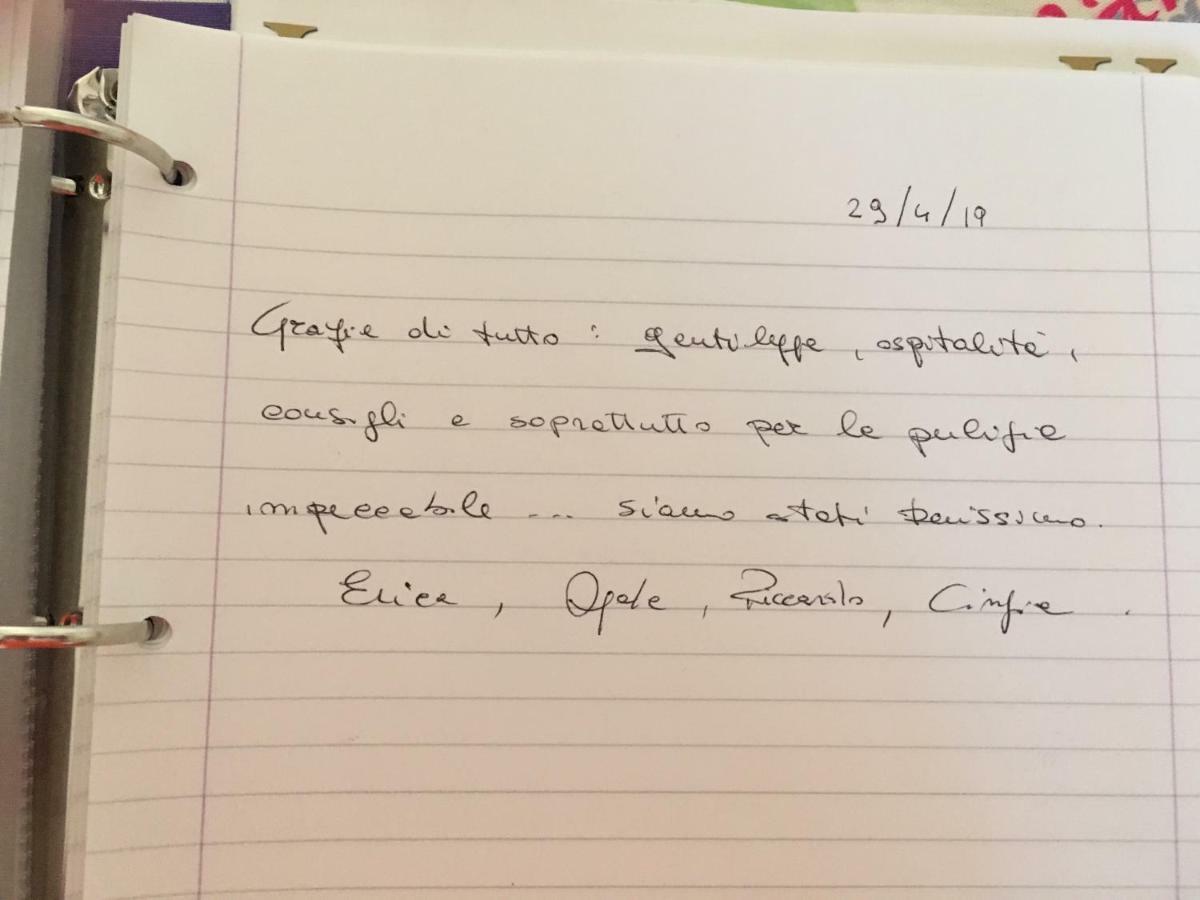 29/4/19
Grazie di tutto: gentilezze, ospitalità,
consigli e soprattutto per la pulizia
impeccabile ... siamo stati benissimo.
Erica, , Riccardo, Cinzia.